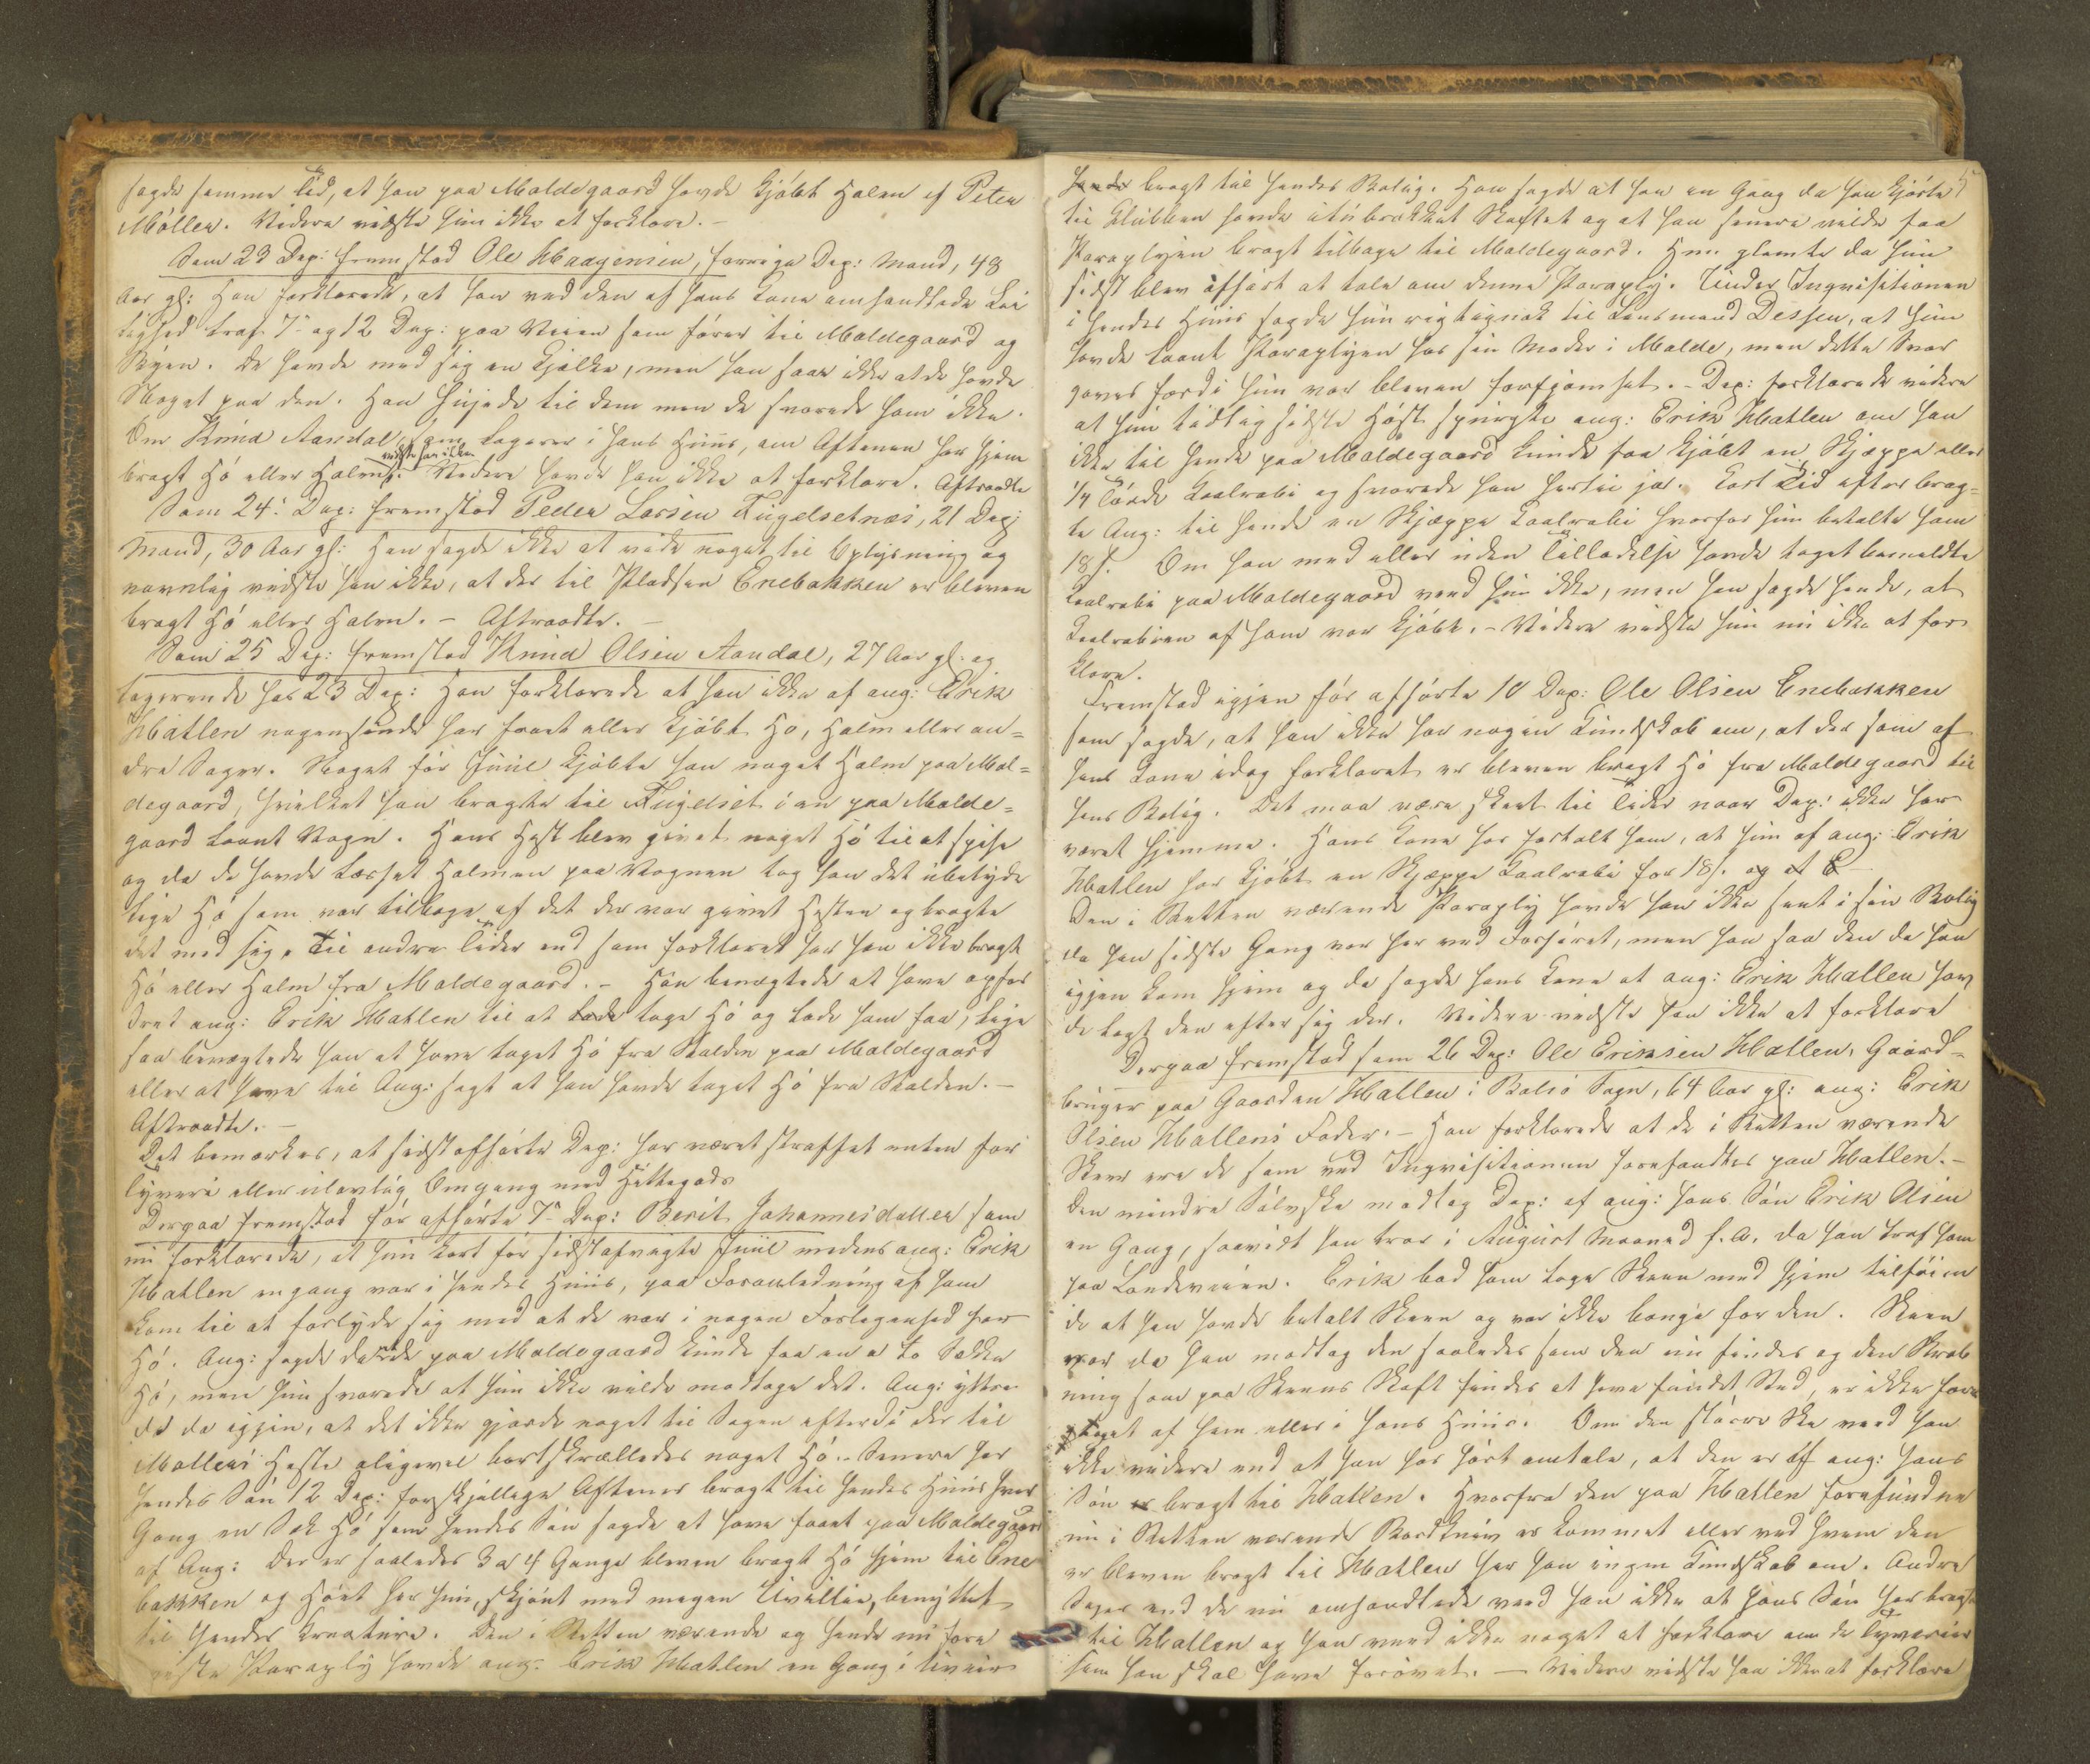 sagde samme Tid, at han paa Moldegaard havde kjöbt Halm af Peter
Möller. Videre vidste hun ikke at forklare. –
Som 23 Dep: fremstod Ole Haagensen, forrige Dep: Mand, 48
Aar gl: Han forklarede, at han ved den af hans Kone omhandlede Lei
lighed traf 7de og 12 Dep: paa Veien som förer til Moldegaard og
Byen. De havde med sig en Kjælke, men han saae ikke at de havde
Noget paa den. Han hujede til dem men de svarede ham ikke.
Om Knud Aandal, som logerer i hans Huus, om Aftenen har hjem
bragt Hö eller Halm vidste han ikke. Videre havde han ikke at forklare. Aftraadte
Som 24de Dep: fremstod Peder Larsen Fugelsetnæs, 21 Dep:
Mand, 30 Aar gl: Han sagde ikke at vide noget til Oplysning og
navnlig vidste han ikke, at der til Pladsen Enebakken er bleven
bragt Hö eller Halm. – Aftraadte. –
Som 25 Dep: fremstod Knud Olsen Aandal, 27 Aar gl. og
logerende hos 23 Dep: Han forklarede at han ikke af ang: Erik
Hatlen nogensinde har faaet eller kjöbt Hö, Halm eller an=
dre Sager. Noget för Juul kjöbte han noget Halm paa Mol=
degaard, hvilket han bragte til Fugelset i en paa Molde=
gaard laant Vogn. Hans Hest blev givet noget Hö til at spise
og da de havde læsset Halmen paa Vognen tog han det ubetyde
lige Hö som var tilbage af det der var givet Hesten og bragte
det med sig. Til andre Tider end som forklaret har han ikke bragt
Hö eller Halm fra Moldegaard. – Han benægtede at have opfor
dret ang: Erik Hatlen til at lade tage Hö og lade ham faa, lige
saa benægtede han at have taget Hö fra Stalden paa Moldegaard
eller at have til Ang: sagt at han havde taget Hö fra Stalden. –
Aftraadte. –
Det bemærkes, at sidstafhörte Dep: har været straffet enten for
Tyveri eller ulovlig Omgang med Hittegods
Derpaa fremstod för afhörte 7de Dep: Berit Johannesdatter som
nu forklarede, at hun kort för sidstafvigte Juul medens ang: Erik
Hatlen engang var i hendes Huus, paa Foranledning af ham
kom til at forlyde sig med at de var i nogen Forlegenhed for
Hö. Ang: sagde da at de paa Moldegaard kunde faa en a to Sække
Hö, men hun svarede at hun ikke vilde modtage det. Ang: yttre
de da igjen, at det ikke gjorde noget til Sagen efterdi der til
Möllers Heste aligevel bortskrælledes noget Hö. Senere har
hendes Sön 12 Dep: forskjellige Aftener bragt til hendes Huus hver
Gang en Sæk Hö som hendes Sön sagde at have faaet paa Moldegaard
af Ang: Der er saaledes 3 a 4 Gange bleven bragt Hö hjem til Ene
bakken og Höet har hun, skjönt med megen Uvillie, benyttet
til hendes Kreature. Den i Retten værende og hende nu fore
viste Paraply havde ang: Erik Hatlen en Gang i Uveir
hende bragt til hendes Bolig. Han sagde at han en Gang da han kjörte
til Klubben havde itubrækket Skaftet og at han senere vilde faa
Paraplyen bragt tilbage til Moldegaard. Hun glemte da hun
sidst blev afhört at tale om denne Paraply. Under Inqvisitionen
i hendes Huus sagde hun rigtignok til Lensmand Dessen, at hun
havde laant Paraplyen hos sin Moder i Molde, men dette Svar
gaves fordi hun var bleven forfjamset. – Dep: forklarede videre
at hun tidlig sidste Höst spurgte ang: Erik Hatlen om han
ikke til hende paa Moldegaard kunde faa kjöbt en Skjæppe eller
1/4 Tönde Kaalrabi og svarede han hertil ja. Kort Tid efter brag=
te Ang: til hende en Skjæppe Kaalrabi hvorfor hun betalte ham
18 s. Om han med eller uden Tilladelse havde taget bemeldte
Kaalrabi paa Moldegaard veed hun ikke, men han sagde hende, at
Kaalrabien af ham var kjöbt. – Videre vidste hun nu ikke at for
klare.
Fremstod igjen för afhörte 10 Dep: Ole Olsen Enebakken
som sagde, at han ikke har nogen Kundskab om, at der som af
hans Kone idag forklaret er bleven bragt Hö fra Moldegaard til
hans Bolig. Det maa være skeet til Tider naar Dep: ikke har
været hjemme. Hans Kone har fortalt ham, at hun af ang: Erik
Hatlen har kjöbt en Skjæppe Kaalrabi for 18 s. og at E
Den i Retten værende Paraply havde han ikke seet i sin Bolig
da han sidste Gang var her ved Forhöret, men han saa den da han
igjen kom hjem og da sagde hans Kone at ang: Erik Hatlen hav
de lagt den efter sig der. Videre vidste han ikke at forklare
Derpaa fremstod som 26 Dep: Ole Eriksen Hatlen, Gaard=
bruger paa Gaarden Hatlen i Bolsö Sogn, 64 Aar gl: ang: Erik
Olsen Hatlens Fader. – Han forklarede at de i Retten værende
Skeer ere de som ved Inqvisitionen forefandtes paa Hatlen. –
Den mindre Sölvske modtog Dep: af ang: hans Sön Erik Olsen
en Gang, saavidt han tror i August Maaned f. A. da han traf ham
paa Landeveien. Erik bad ham tage Skeen med hjem tilföien
de at han havde betalt Skeen og var ikke bange for den. Skeen
var da han modtog den saaledes som den nu findes og den Skrab
ning som paa Skeens Skaft findes at have fundet Sted, er ikke fore
taget af ham eller i hans Huus. Om den större Ske veed han
ikke videre end at han har hört omtale, at den er af ang: hans
Sön er bragt til Hatlen. Hvorfra den paa Hatlen forefundne
nu i Retten værende Bordkniv er kommet eller ved hvem den
er bleven bragt til Hatlen har han ingen Kundskab om. Andre
Sager end de nu omhandlede veed han ikke at hans Sön har bragt
til Hatlen og han veed ikke noget at forklare om de Tyverier
som han skal have forövet. – Videre vidste han ikke at forklare